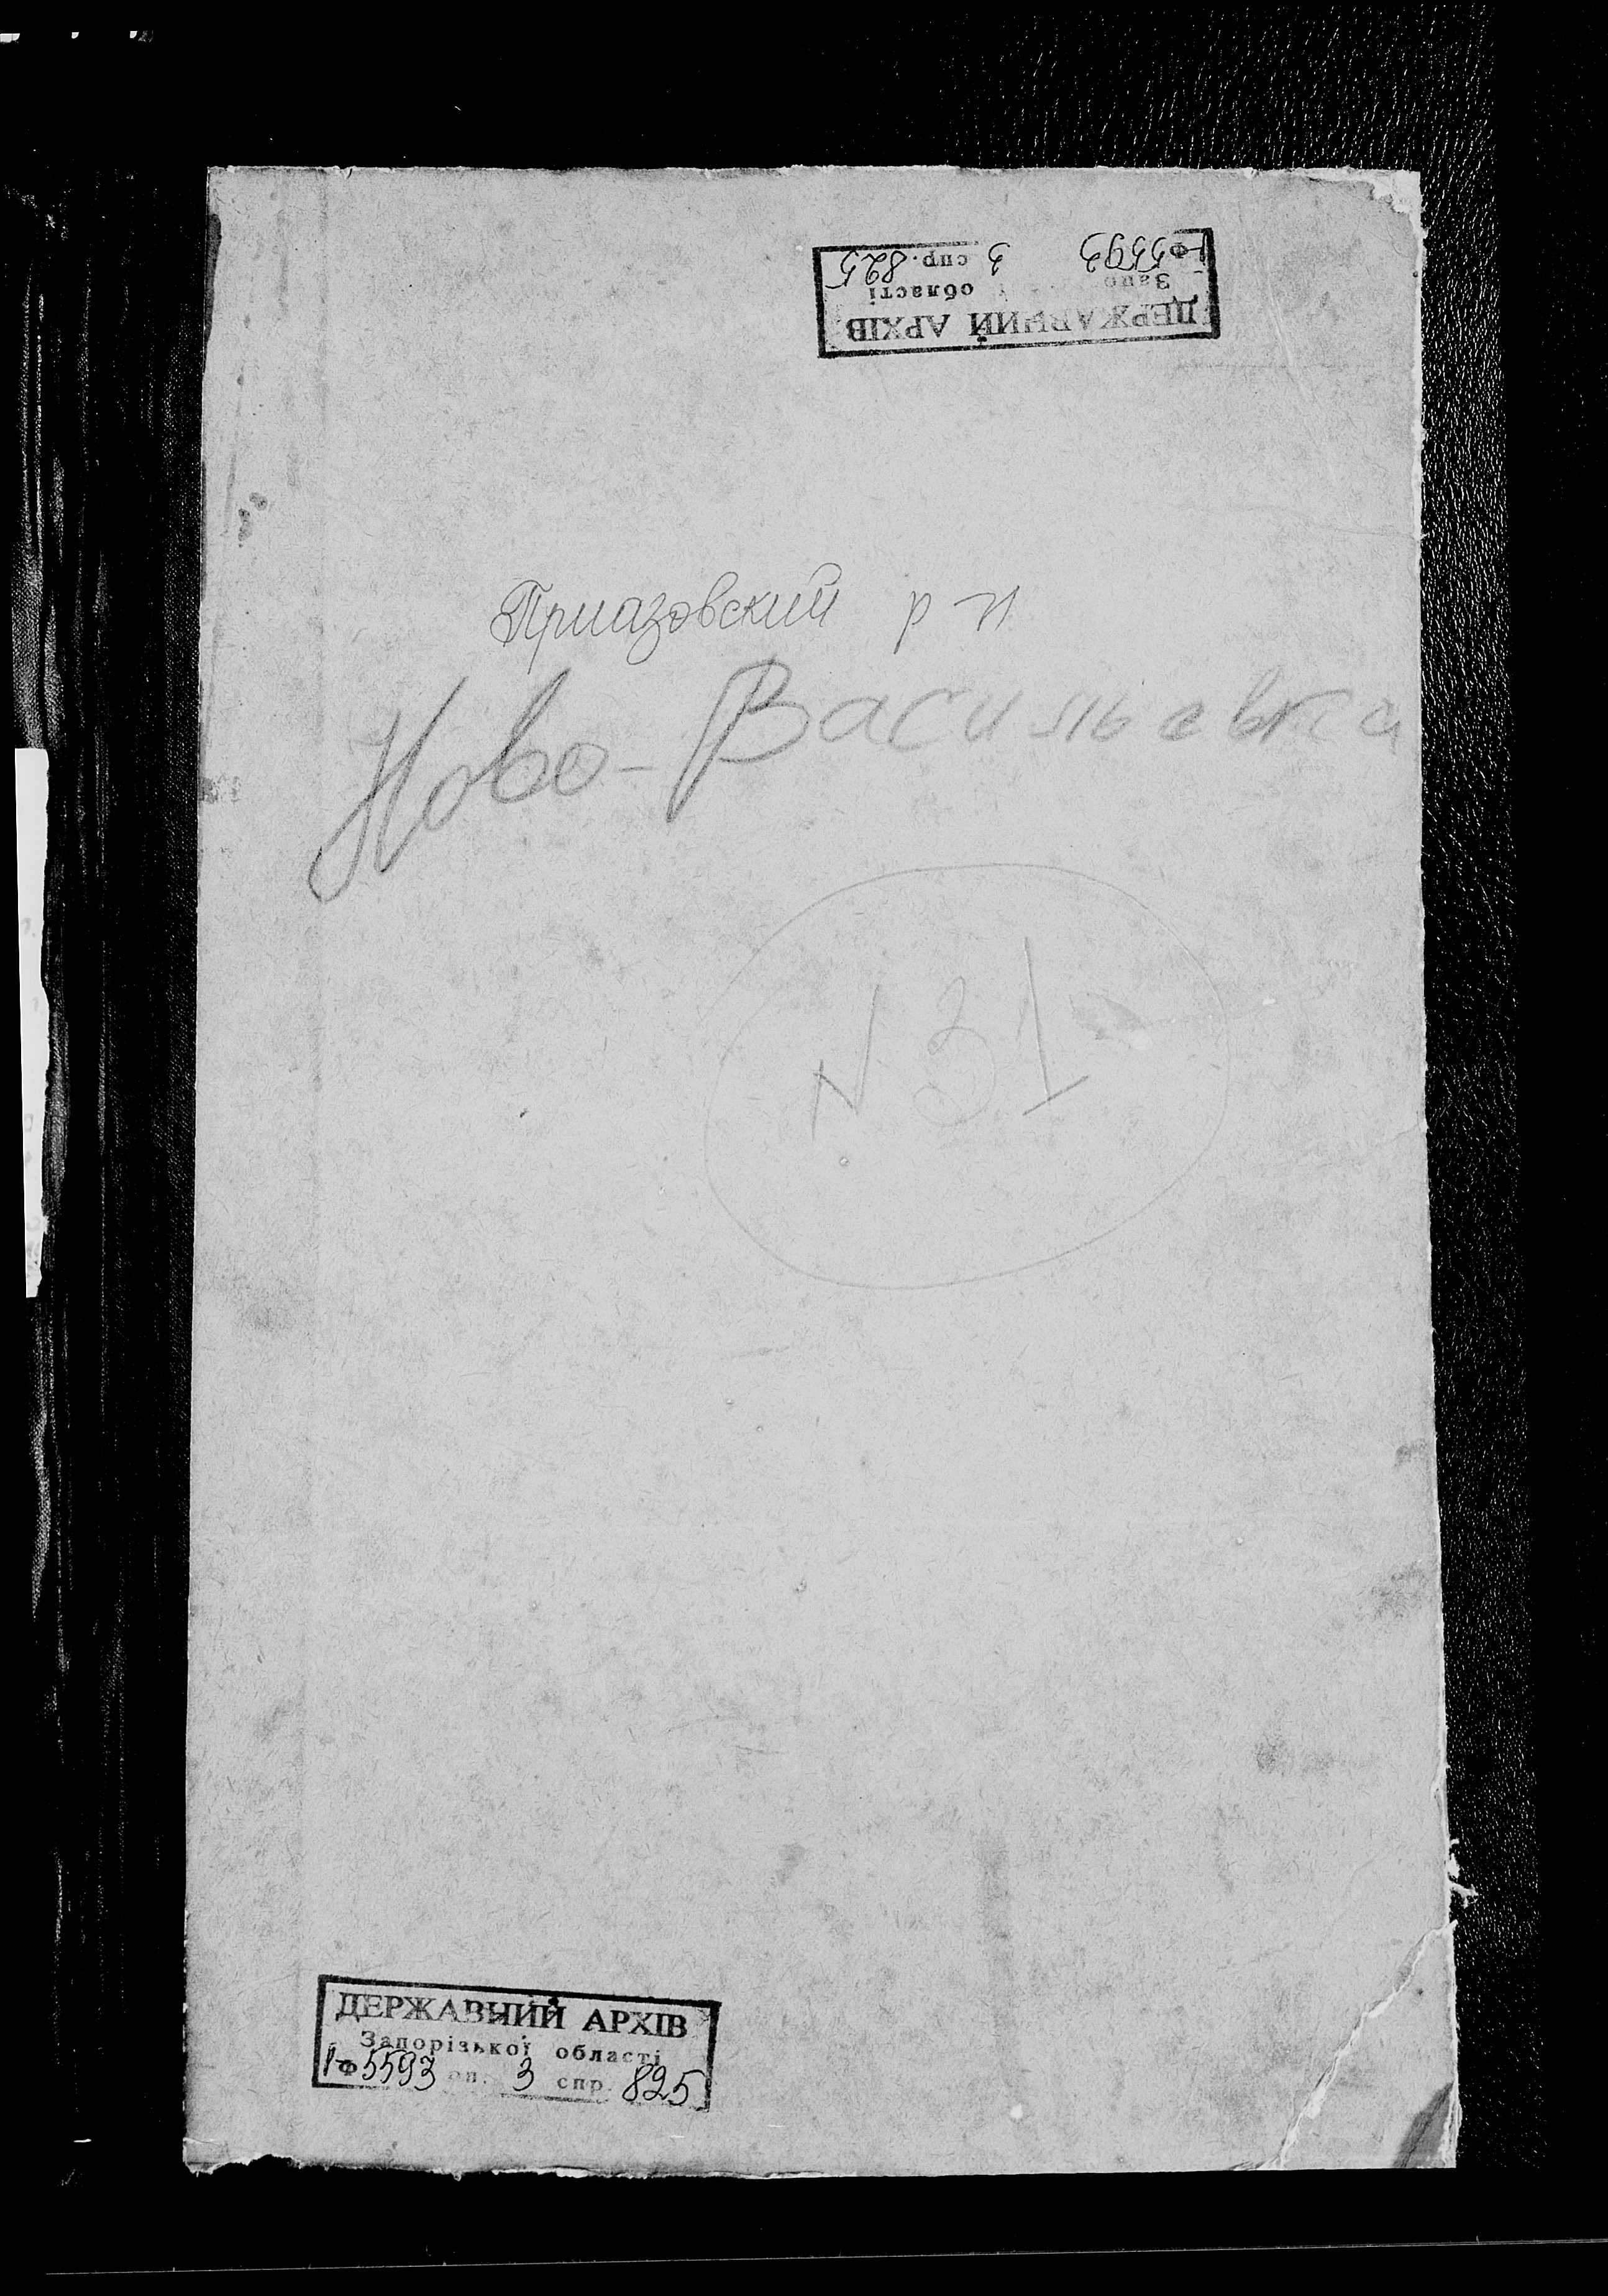 ДЕРЖАВНИЙ АРХІВ
Запо області
ф 5593 3 спр. 825
Приазовский р-н
Ново-Васильевка
N 31
ДЕРЖАВНИЙ АРХІВ
Запорізької області
ф 5593 оп. 3 спр. 825